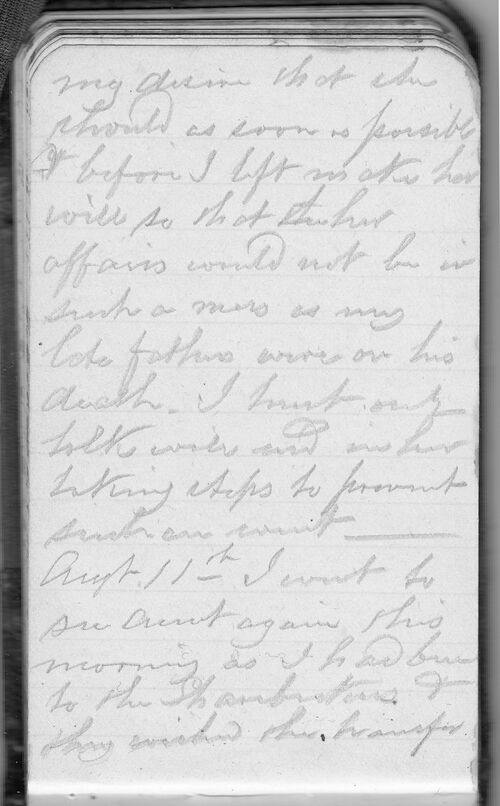 my desire that she
should as soon as possible
& before I left make her
will so that her
affairs would not be in
such a mess as my
late fathers were on his
death. I trust our
talk will end in her
taking steps to prevent
such an event
Augt. 11th I went to
see Aunt again this
morning as I had been
to the &
they wished the transfer